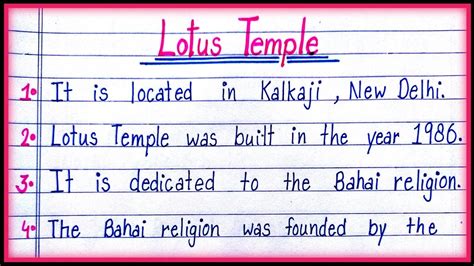 Lotus Temple
1. It is located in Kalkaji, New Delhi.
2. Lotus Temple was built in the year 1986.
3. It is dedicated to the Bahai religion.
4. The Bahai religion was founded by the